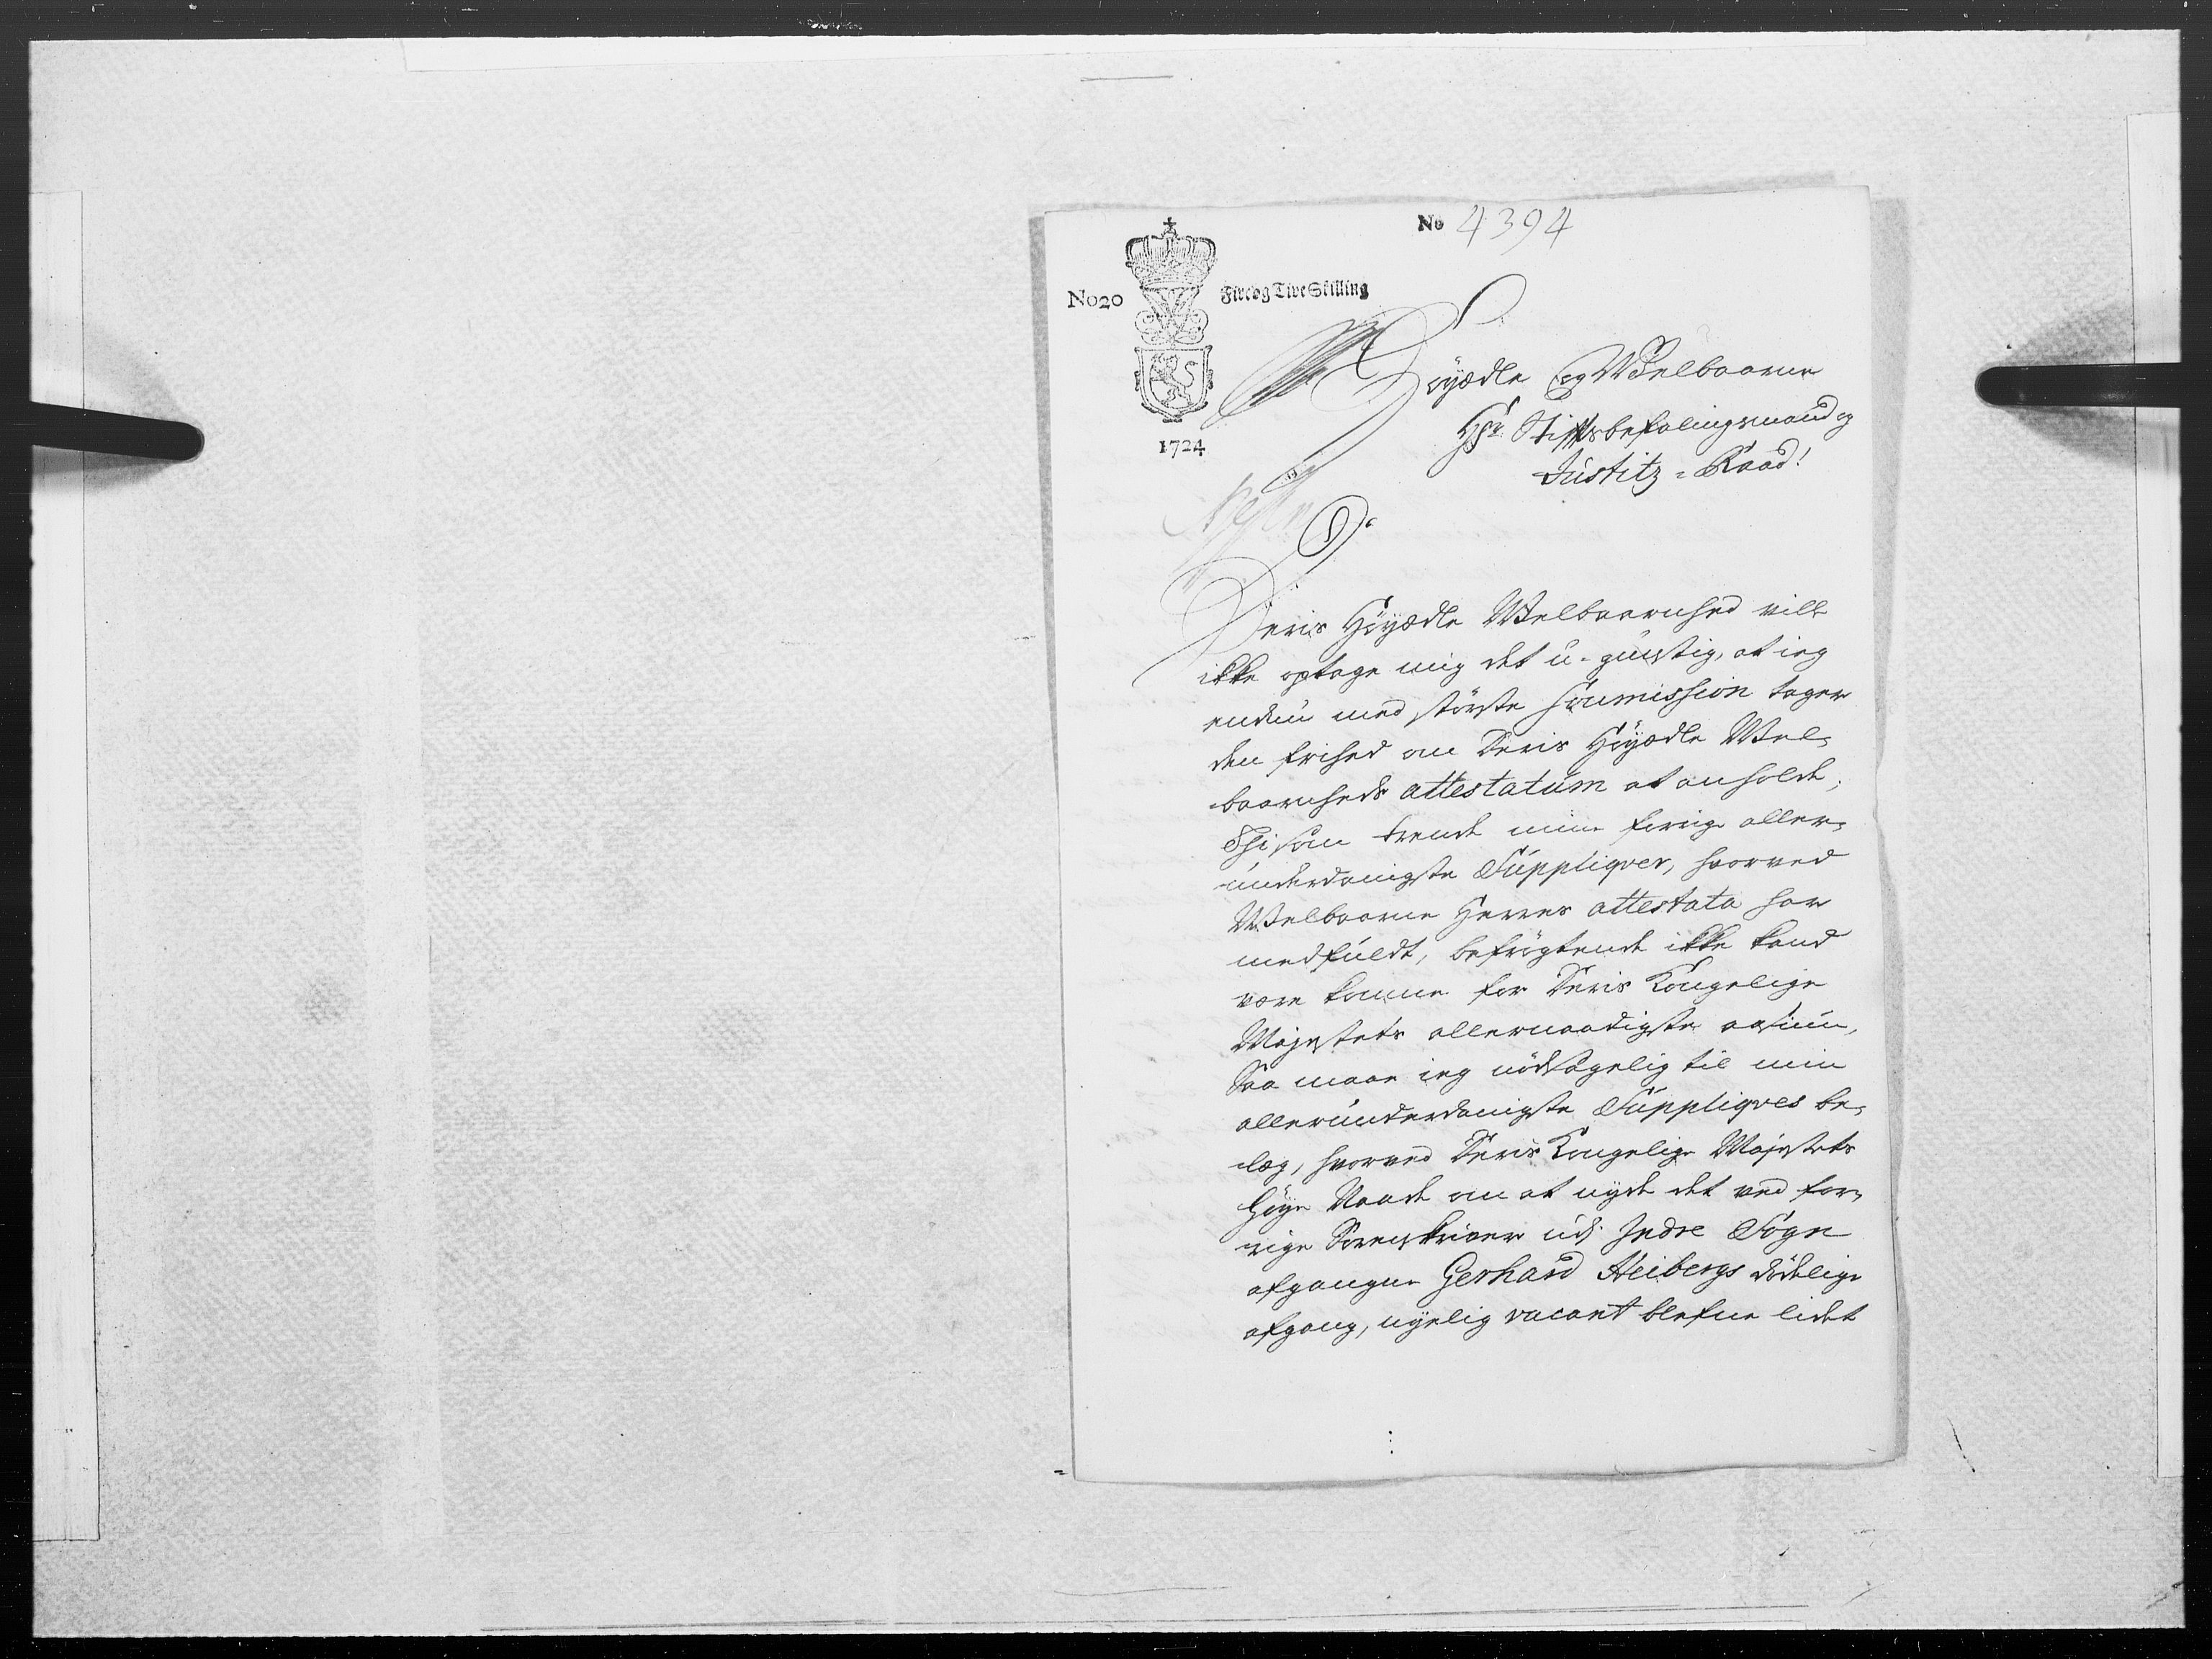 No 4394
No20
Fire og Tive Skilling
1724
Høyædle og Welbaarne
Hr. Stiftsbefalingsmand og
Justitz-Raad!
Deris Høyædle Welbaarenhed vill
ikke optage mig det u-gunstig, at ieg
endnu med største soumission tager
den frihed om Deris Høyædle Wel-
baarenheds attestatum at anholde,
Thi som trende mine forrige aller-
underdanigste Suppliqver, hvorved
Welbaarne Herres attestata har
medfuldt, befrygtende ikke kand
være komne for Deris Kongelige
Majestets allernaadigste
Saa maae ieg nødsagelig til min
allerunderdanigste Suppliqves be-
læg, hvorved Deris Kongelige Majestets
Høye Naade om at nyde det ved for-
rige Sorenskriver udj Indre Sogn
afgangne Gerhard Heibergs dødelige
afgang, nyelig vacant blefne lidet